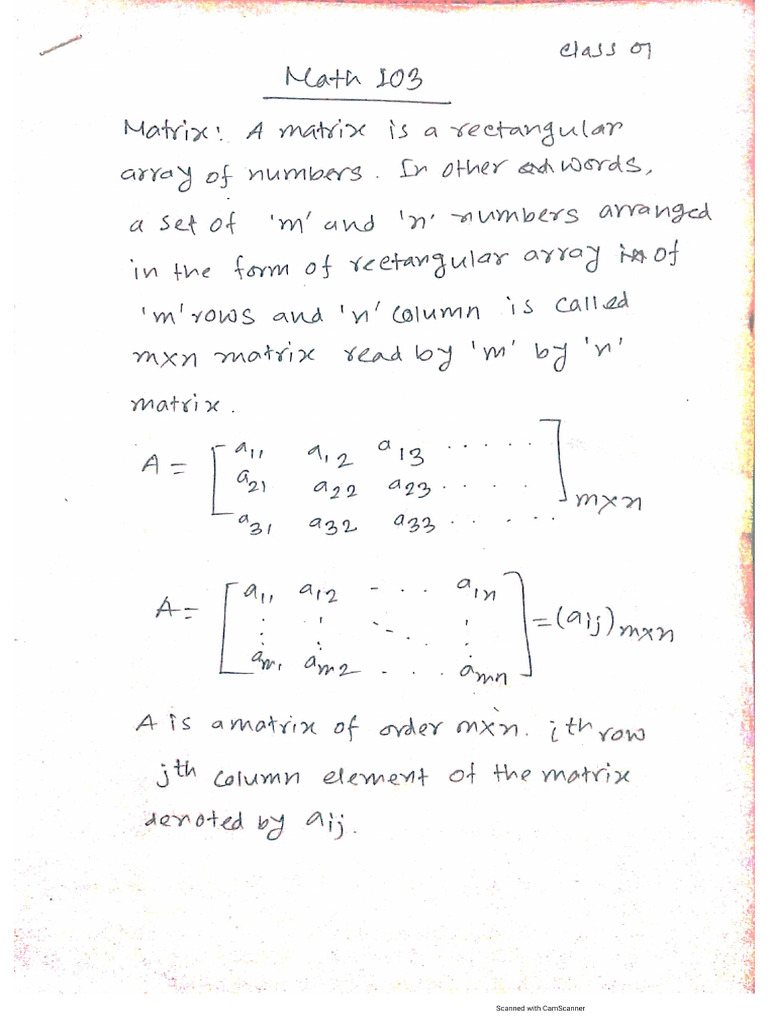 Class 01
Math 103
Matrix: A matrix is a rectangular
array of numbers. In other words,
a set of 'm' and 'n' numbers arranged
in the form of rectangular array of
'm' rows and 'n' column is called
m×n matrix read by 'm' by 'n'
matrix.
A = [ a11 a12 a13 ......
a21 a22 a23 ....
a31 a32 a33 ...... ] m×n
A = [ a11 a12 - .. a1n
: : -.. :
am1 am2 - ... amn ] = (aij) m×n
A is a matrix of order m×n. ith row
jth column element of the matrix
denoted by aij.
Scanned with CamScanner